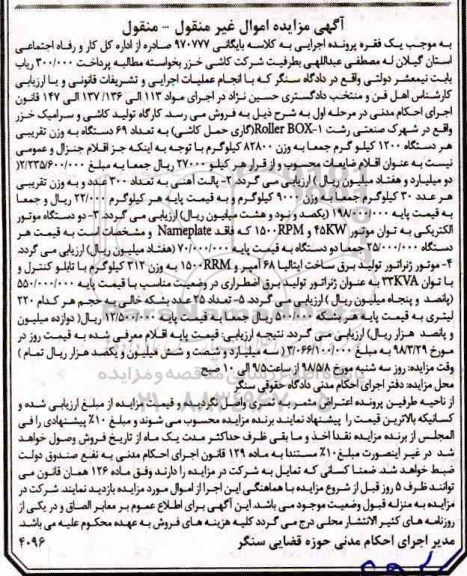 آگهی مزایده اموال غیر منقول - منقول
به موجب یک فقره پرونده اجرایی به کلاسه بایگانی ۹۷۰۷۷۷ صادره از اداره کل کار و رفاه اجتماعی
استان گیلان له مصطفی عبداللهی بطرفیت شرکت کاشی خزر بخواسته مطالبه پرداخت ۳۰۰/۰۰۰ ریاب
بابت نیمعشر دولتی واقع در دادگاه سنگر که با انجام عملیات اجرایی و تشریفات قانونی و با ارزیابی
کارشناس اهل فن و منتخب دادگستری حسین نژاد در اجرای مواد ۱۱۳ الی ۱۳۶/ ۱۳۷ الی ۱۴۷ قانون
اجرای احکام مدنی در مرحله اول به شرح ذیل به فروش می رسد. کارگاه تولید کاشی و سرامیک خزر
واقع در شهرک صنعتی رشت ۱-Roller BOX(گاری حمل کاشی) به تعداد ۶۹ دستگاه به وزن تقریبی
هر دستگاه ۱۲۰۰ کیلو گرم جمعا به وزن ۸۲۸۰۰ کیلوگرم با توجه به اینکه جز اقلام جنرال و عمومی
نیست به عنوان اقلام ضایعات محسوب و از قرار هر کیلو ۲۷۰۰۰ ریال جمعا به مبلغ ۲/۲۳۵/۶۰۰/۰۰۰(
دو میلیارد و هفتاد میلیون ریال ) ارزیابی می گردد. ۲- پالت آهنی به تعداد ۳۰۰ عدد و به وزن تقریبی
هر عدد ۳۰ کیلوگرم جمعا به وزن ۹۰۰۰ کیلوگرم و به قیمت پایه هر کیلوگرم ۲۲/۰۰۰ ریال و جمعا
به قیمت پایه ۱۹۸/۰۰۰/۰۰۰ (یکصد و نود و هشت میلیون ریال) ارزیابی می گردد. ۳- دو دستگاه موتور
الکتریکی به توان موتور ۴۵KW و ۱۵۰۰RPM که فاقد Nameplate و مشخصات است به قیمت هر
دستگاه ۲۵/۰۰۰/۰۰۰ جمعا دو دستگاه به قیمت پایه ۷۰/۰۰۰/۰۰۰ (هفتاد میلیون ریال) ارزیابی می گردد.
۴- موتور ژنراتور تولید برق ساخت ایتالیا ۶۸ آمپر و ۱۵۰۰RRM به وزن ۳۱۲ کیلوگرم با تابلو کنترل و
با توان ۳۳KVA به عنوان ژنراتور تولید برق اضطراری در وضعیت مناسب با قیمت پایه ۵۵۰/۰۰۰/۰۰۰
(پانصد و پنجاه میلیون ریال ) ارزیابی می گردد. ۵- تعداد ۲۵ عدد بشکه خالی به حجم هر کدام ۲۲۰
لیتری به قیمت پایه هر بشکه ۵۰۰/۰۰۰ ریال جمعا به قیمت پایه ۱۲/۵۰۰/۰۰۰ ریال( دوازده میلیون
و پانصد هزار ریال) ارزیابی می گردد. نتیجه ارزیابی: قیمت پایه اقلام معرفی شده به قیمت روز در
مورخ ۹۸/۳/۲۹ به مبلغ ۳/۰۶۶/۱۰۰/۰۰۰( سه میلیارد و شصت و شش میلیون و یکصد هزار ریال تمام )
وقت مزایده: روز سه شنبه مورخ ۹۸/۵/۸ از ساعت ۹/۵ الی ۱۰ صبح
محل مزایده: دفتر اجرای احکام مدنی دادگاه حقوقی سنگر
از ناحیه طرفین پرونده اعتراض مثمر به ثمری واصل نگردید و قیمت مزایده از مبلغ ارزیابی شده و
کسانیکه بالاترین قیمت را پیشنهاد نمایند برنده مزایده محسوب می شوند و مبلغ ۱۰٪ پیشنهادی را فی
المجلس از برنده مزایده نقدا اخذ و ما بقی ظرف حداکثر مدت یک ماه از تاریخ فروش وصول خواهد
شد در غیر اینصورت مبلغ ۱۰٪ مستندا به ماده ۱۲۹ قانون اجرای احکام مدنی به نفع صندوق دولت
ضبط خواهد شد. ضمنا کسانی که تمایل به شرکت در مزایده را دارند وفق ماده ۱۲۶ همان قانون می
توانند ظرف ۵ روز قبل از شروع مزایده با هماهنگی این اجرا از اموال مورد مزایده بازدید نمایند. شرکت در
مزایده به منزله قبول وضعیت موجود می باشد. این آگهی برای اطلاع عموم بر معابر الصاق و در یکی از
روزنامه های کثیر الانتشار محلی درج می گردد کلیه هزینه های فروش به عهده محکوم علیه می باشد.
مدیر اجرای احکام مدنی حوزه قضایی سنگر ۴۰۹۶